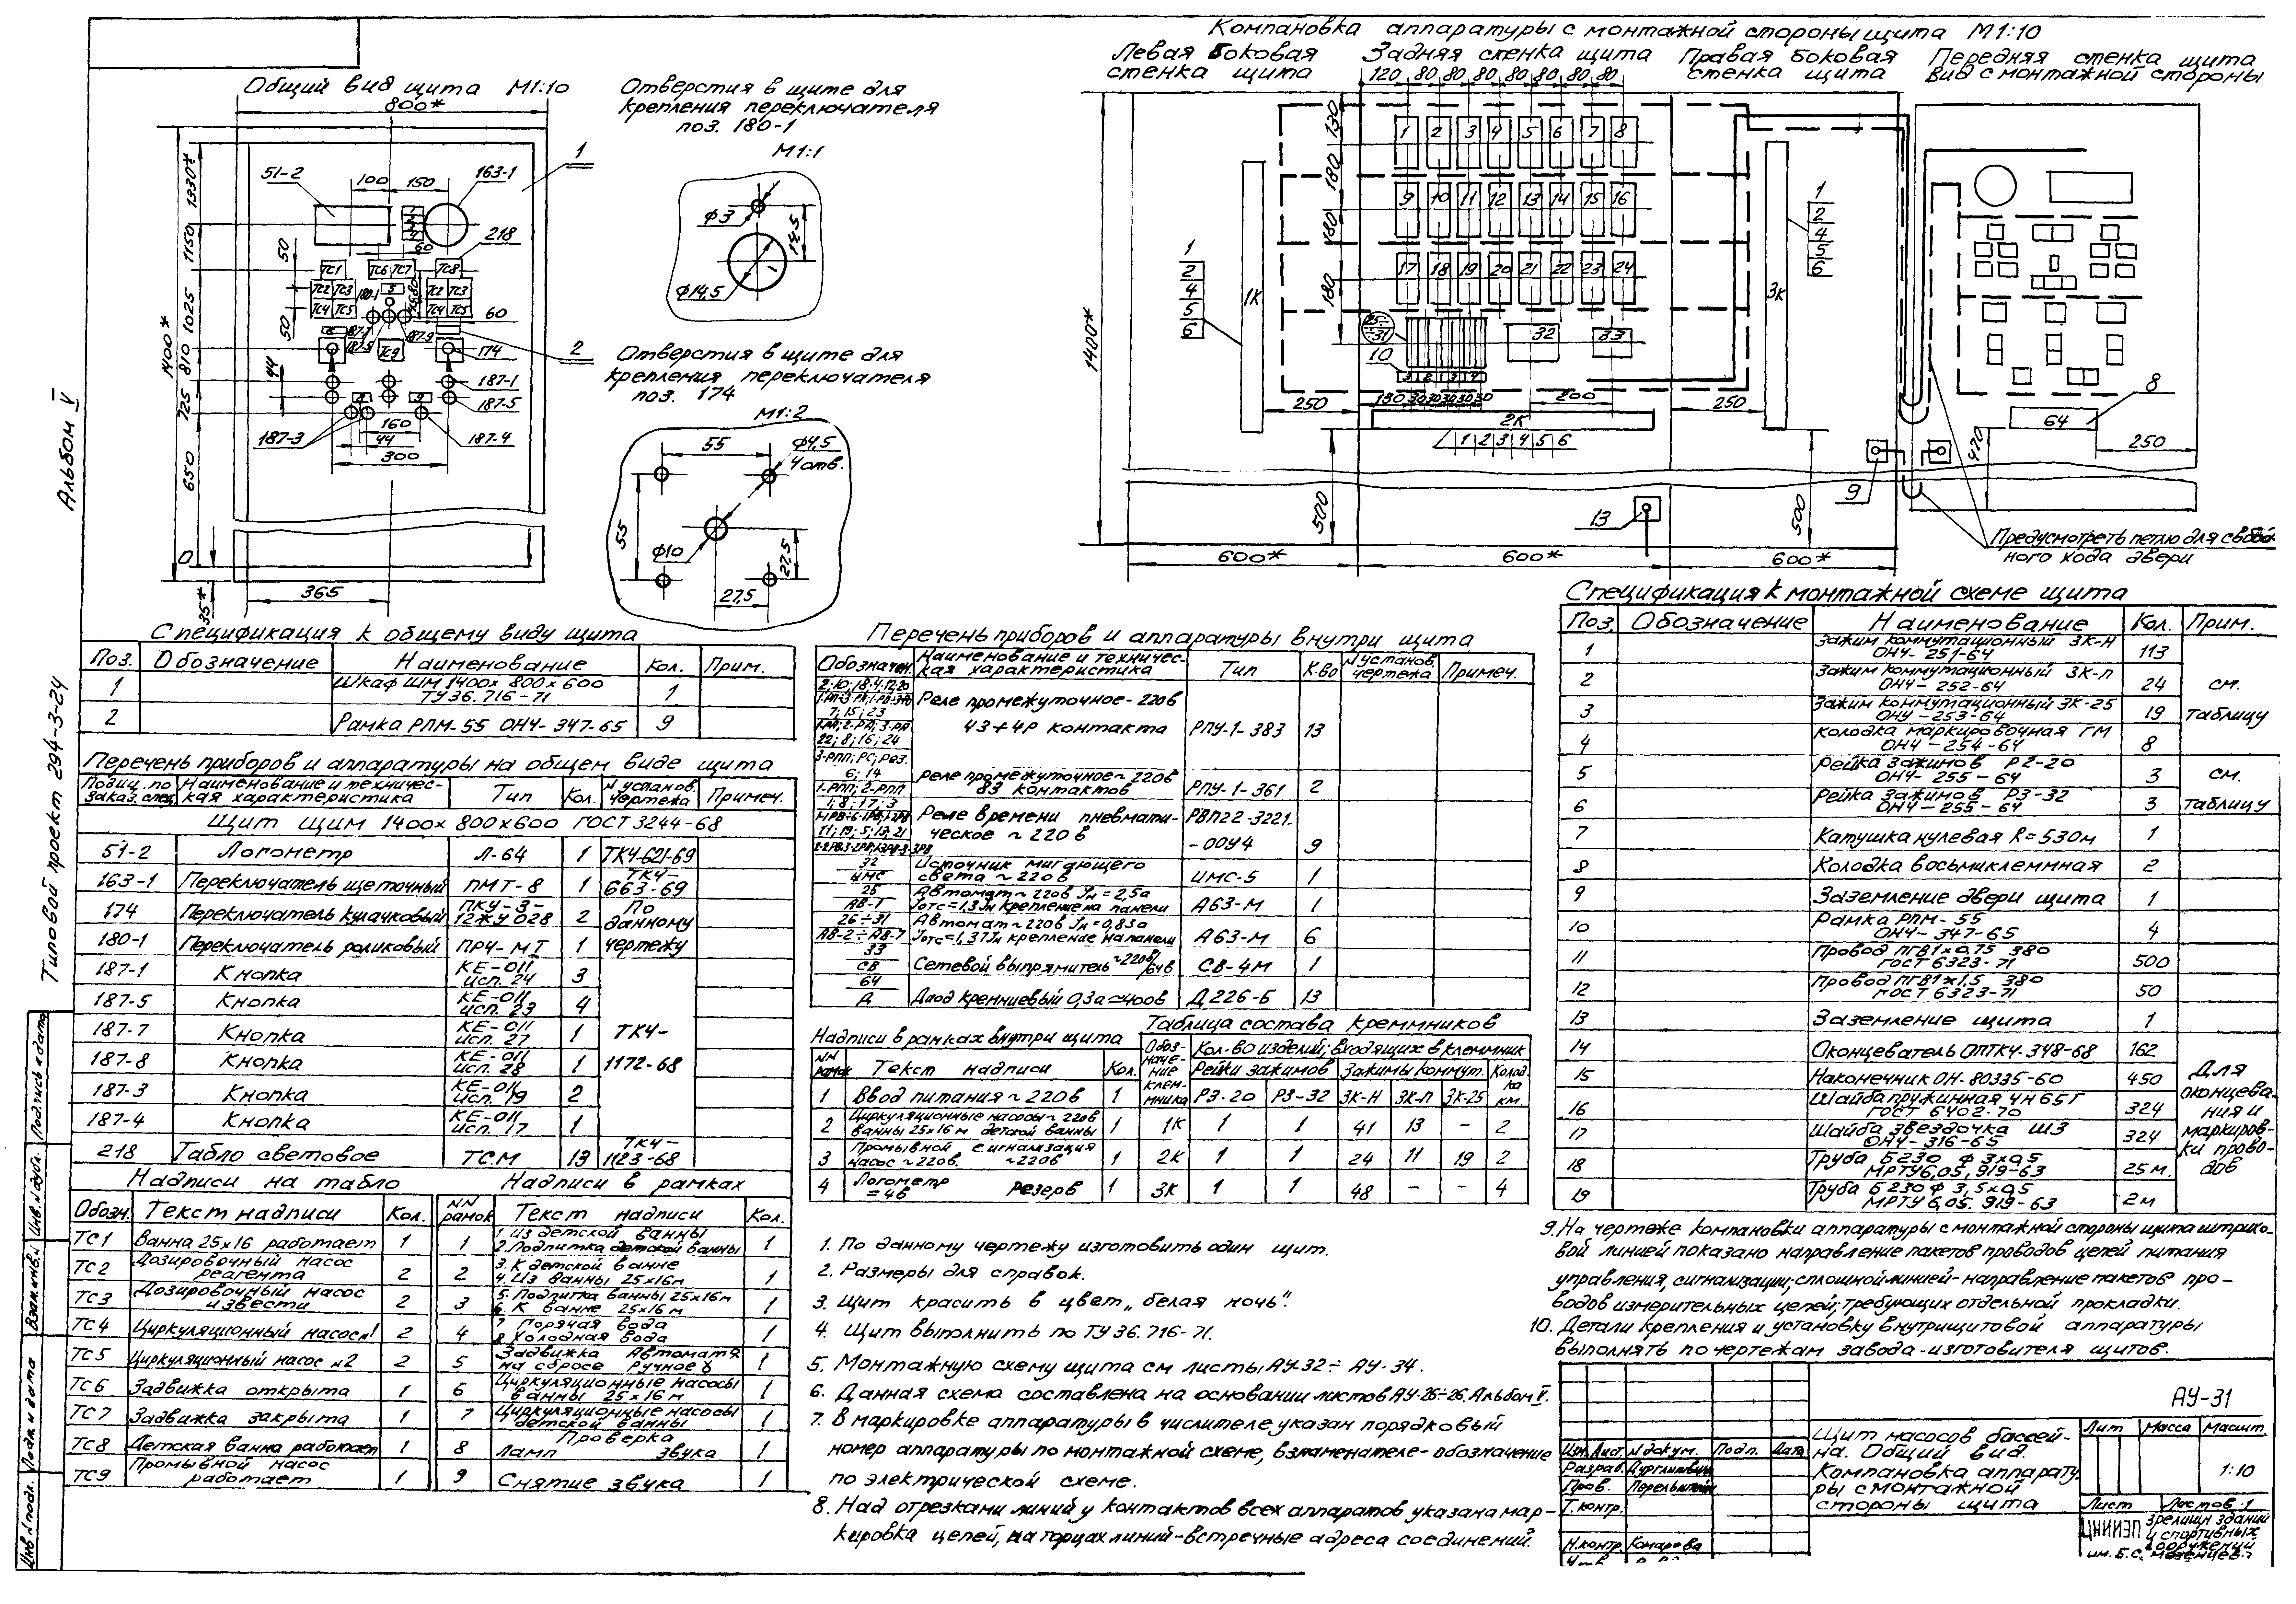 Компановка аппаратуры с монтажной стороны щита М1:10
Общий вид щита М1:10
800*
Отверстия в щите для
крепления переключателя
поз. 180-1
М1:1
ф3
ф14,5
Отверстия в щите для
крепления переключателя
поз. 174
М1:2
55
ф4,5
4 отв.
55
ф10
27,5
27,5
Левая боковая
стенка щита
Задняя стенка щита
Правая боковая
стенка щита
Передняя стенка щита
вид с монтажной стороны
120 80 80 80 80 80 80 80
130
180
180
180
1 2 3 4 5 6 7 8
9 10 11 12 13 14 15 16
17 18 19 20 21 22 23 24
32
33
10
1К
2К
3К
1
2
4
5
6
1
2
4
5
6
1 2 3 4 5 6
250
200
250
1400*
500
500
600*
600*
600*
13
9
8
64
420
250
Предусмотреть петлю для свобод-
ного хода двери
51-2
100
150
163-1
1
218
60
ТС1
ТС6 ТС7
ТС8
ТС2 ТС3
ТС4 ТС5
ТС2 ТС3
ТС4 ТС5
180-1
60
2
ТС9
174
187-1
187-5
187-3
187-4
160
44
300
365
1330*
1150
1025
810
725
650
0
35*
1400*
50
50
44
Альбом V
Типовой проект 294-3-24
Спецификация к общему виду щита
Поз. Обозначение Наименование Кол. Прим.
1 Шкаф ШМ 1400х800х600 ТУ 36.716-71 1
2 Рамка РПМ-55 ОНЧ-347-65 9
Перечень приборов и аппаратуры на общем виде щита
Позиц. по заказ. спец. Наименование и техничес-кая характеристика Тип Кол. N установ. чертежа Примеч.
Щит ЩШМ 1400х800х600 ГОСТ 3244-68
51-2 Логометр Л-64 1 ТКЧ-621-69
163-1 Переключатель щеточный ПМТ-8 1 ТКЧ-663-69
174 Переключатель кулачковый ПКУ-3-12ЖУ028 2 По данному
180-1 Переключатель роликовый ПРЧ-МТ 1 чертежу
187-1 Кнопка КЕ-011 исп. 24 3
187-5 Кнопка КЕ-011 исп. 23 4
187-7 Кнопка КЕ-011 исп. 27 1 ТКЧ-
187-8 Кнопка КЕ-011 исп. 28 1 1172-68
187-3 Кнопка КЕ-011 исп. 19 2
187-4 Кнопка КЕ-011 исп. 17 1
218 Табло световое ТСМ 13 ТКЧ-1123-68
Надписи на табло
Обозн. Текст надписи Кол.
ТС1 Ванна 25х16 работает 1
ТС2 Дозировочный насос реагента 2
ТС3 Дозировочный насос извести 2
ТС4 Циркуляционный насос N1 2
ТС5 Циркуляционный насос N2 2
ТС6 Задвижка открыта 1
ТС7 Задвижка закрыта 1
ТС8 Детская ванна работает 1
ТС9 Промывной насос работает 1
Надписи в рамках
NN рамок Текст надписи Кол.
1 1. Из детской ванны 2. Подпитка детской ванны 1
2 3. К детской ванне 4. Из ванны 25х16м 1
3 5. Подпитка ванны 25х16м 6. К ванне 25х16м 1
4 7 Горячая вода 8 Холодная вода 1
5 Задвижка Автомат на сбросе Ручное 1
6 Циркуляционные насосы ванны 25х16м 1
7 Циркуляционные насосы детской ванны 1
8 Проверка ламп звука 1
9 Снятие звука 1
Перечень приборов и аппаратуры внутри щита
Обозначен. Наименование и техничес-кая характеристика Тип К-во N установ. чертежа Примеч.
Реле промежуточное ~220в 43+4Р контакта РПУ-1-383 13
6; 14 1-РПП; 2-РПП Реле промежуточное ~220в 83 контактов РПУ-1-361 2
Реле времени пневмати-ческое ~220в РВП22-3221-00У4 9
32 ИМС Источник мигающего света ~220в ИМС-5 1
25 АВ-1 Автомат ~220в Jн=2,5а Jотс=1,3Jн крепление на панели А63-М 1
26÷31 АВ-2÷АВ-7 Автомат ~220в Jн=0,83а Jотс=1,37Jн крепление на панели А63-М 6
33 СВ Сетевой выпрямитель ~220в/64в СВ-4М 1
64 Д Диод кремниевый 0,3а ~400в Д226-Б 13
Надписи в рамках внутри щита
NN рамок Текст надписи Кол.
1 Ввод питания ~220в 1
2 Циркуляционные насосы ~220в ванны 25х16м детской ванны 1
3 Промывной сигнализация насос ~220в. ~220в 1
4 Логометр =4в Резерв 1
Таблица состава клеммников
Обоз-наче-ние клем-мника Кол-во изделий, входящих в клеммник
Рейки зажимов Зажимы коммут. Колод-ка
РЗ-20 РЗ-32 ЗК-Н ЗК-П ЗК-25 км.
1К 1 1 41 13 - 2
2К 1 1 24 11 19 2
3К 1 1 48 - - 4
1. По данному чертежу изготовить один щит.
2. Размеры для справок.
3. Щит красить в цвет „белая ночь".
4. Щит выполнить по ТУ 36.716-71.
5. Монтажную схему щита см листы АУ-32÷АУ-34.
6. Данная схема составлена на основании листов АУ-25÷26. Альбом V.
7. В маркировке аппаратуры в числителе указан порядковый
номер аппаратуры по монтажной схеме, в знаменателе - обозначение
по электрической схеме.
8. Над отрезками линий у контактов всех аппаратов указана мар-
кировка цепей, на торцах линий - встречные адреса соединений.
Спецификация к монтажной схеме щита
Поз. Обозначение Наименование Кол. Прим.
1 Зажим коммутационный ЗК-Н ОНЧ-251-64 113
2 Зажим коммутационный ЗК-П ОНЧ-252-64 24 см.
3 Зажим коммутационный ЗК-25 ОНЧ-253-64 19 таблицу
4 Колодка маркировочная ГМ ОНЧ-254-64 8
5 Рейка зажимов РЗ-20 ОНЧ-255-64 3 см.
6 Рейка зажимов РЗ-32 ОНЧ-255-64 3 таблицу
7 Катушка нулевая R=530м 1
8 Колодка восьмиклеммная 2
9 Заземление двери щита 1
10 Рамка РПМ-55 ОНЧ-347-65 4
11 Провод ПГВ1х0,75 380 ГОСТ 6323-71 500
12 Провод ПГВ1х1,5 380 ГОСТ 6323-71 50
13 Заземление щита 1
14 Оконцеватель ОПТКЧ-348-68 162
15 Наконечник ОН-80335-60 450
16 Шайба пружинная 4Н65Г ГОСТ 6402-70 324
17 Шайба звездочка Ш3 ОНЧ-316-65 324
18 Труба Б230 ф 3х0,5 МРТУ6.05.919-63 25м.
19 Труба Б230 ф 3,5х0,5 МРТУ 6.05.919-63 2м
Для
оконцева-
ния и
маркиров-
ки прово-
дов
9. На чертеже компановки аппаратуры с монтажной стороны щита штрихо-
вой линией показано направление пакетов проводов цепей питания
управления, сигнализации; сплошной линией - направление пакетов про-
водов измерительных цепей, требующих отдельной прокладки.
10. Детали крепления и установку внутрищитовой аппаратуры
выполнять по чертежам завода-изготовителя щитов.
АУ-31
Щит насосов бассей-
на. Общий вид.
Компановка аппарату
ры с монтажной
стороны щита
Лит Масса Масшт.
1:10
Лист Листов 1
ЦНИИЭП зрелищн зданий
и спортивных
сооружений
им. Б.С. Мезенцева
Изм. Лист. N докум. Подп. Дата
Разраб.
Пров.
Т.контр.
Н.контр. Комарова
Подпись и дата
Инв. N дубл.
Взам.инв. N
Подп и дата
Инв N подл.